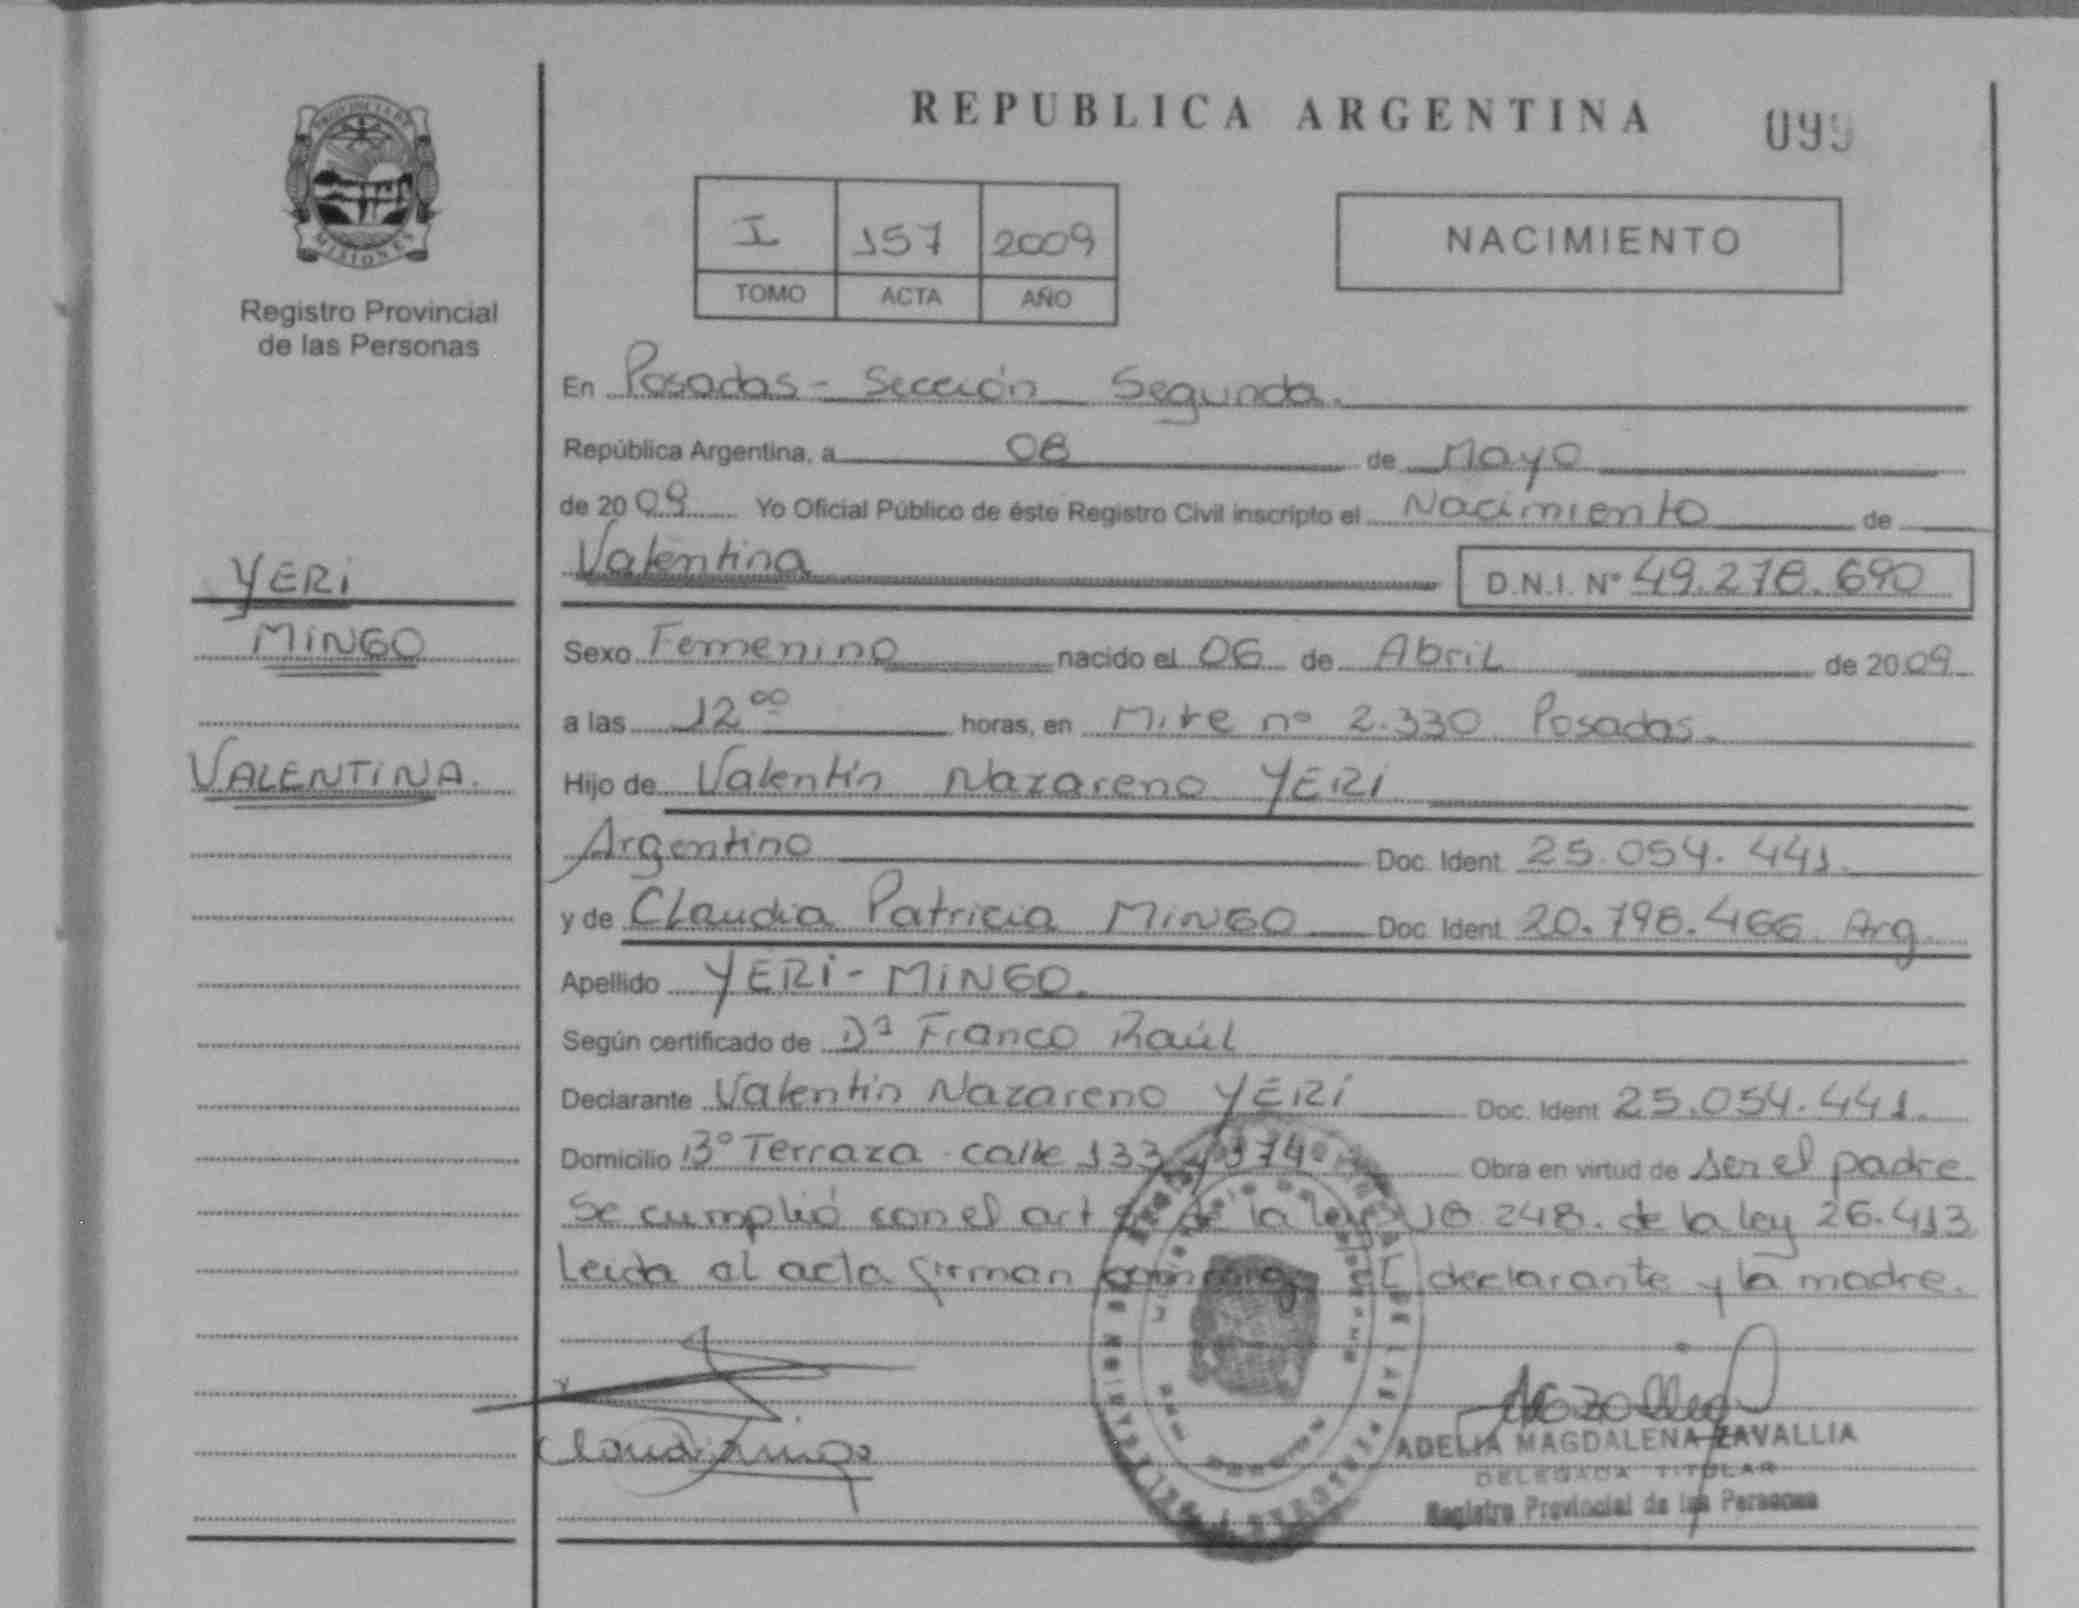 REPUBLICA ARGENTINA 099
PROVINCIA DE
MISIONES
Registro Provincial
de las Personas
I 157 2009
TOMO ACTA AÑO
NACIMIENTO
En Posadas - Sección Segunda.
República Argentina, a 08 de Mayo
de 2009 Yo Oficial Público de éste Registro Civil inscripto el Nacimiento de
Valentina D.N.I. Nº 49.278.690
YERI
MINGO
VALENTINA.
Sexo Femenino nacido el 06 de Abril de 2009
a las 12 00 horas, en Mitre nº 2.330 Posadas.
Hijo de Valentín Nazareno YERI
Argentino Doc. Ident. 25.054.441.
y de Claudia Patricia MINGO Doc. Ident. 20.798.466 Arg.
Apellido YERI - MINGO.
Según certificado de Franco Raúl
Declarante Valentín Nazareno YERI Doc. Ident 25.054.441.
Domicilio Bº Terraza calle 133 y 174º Obra en virtud de ser el padre
Se cumplió con el art de la ley 18.248. de la ley 26.413
Leida al acta firman conmigo el declarante y la madre.
ADELIA MAGDALENA ZAVALLIA
DELEGADA TITULAR
Registro Provincial de las Personas